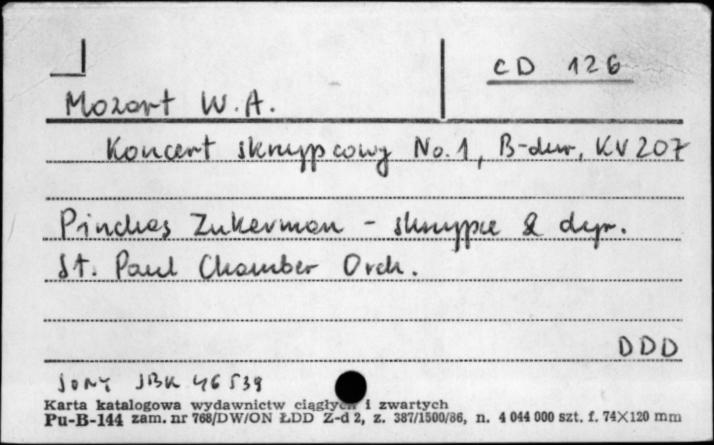 CD 126
Mozart W.A.
Koncert skrzypcowy No. 1, B-dur, KV 207
Pinchas Zukerman - skrzypce & dyr.
St. Paul Chamber Orch.
DDD
SONY SBK 46539
Karta katalogowa wydawnictw ciągłych i zwartych
Pu-B-144 zam. nr 768/DW/ON ŁDD Z-d 2, z. 387/1500/86, n. 4 044 000 szt. f. 74×120 mm